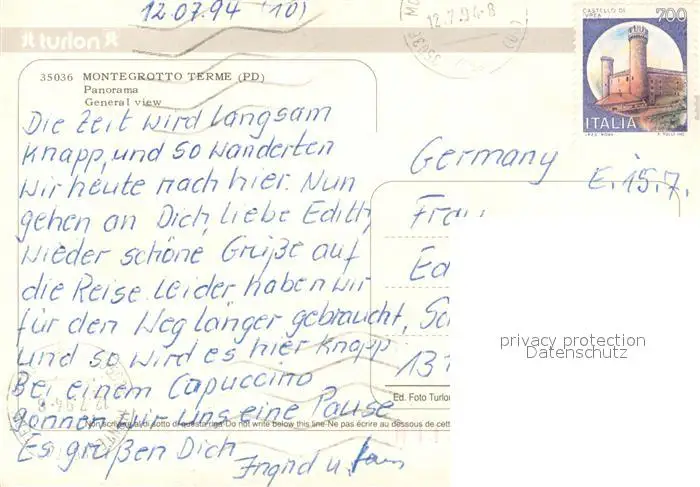 12.07.94 (10)
12.7.94-8
CASTELLO DI IVREA 700
turlon
35036 MONTEGROTTO TERME (PD)
Panorama
General view
ITALIA
Die Zeit wird langsam
knapp, und so wanderten
wir heute nach hier. Nun
gehen an Dich, liebe Edith,
wieder schöne Grüße auf
die Reise. Leider haben wir
für den Weg länger gebraucht,
und so wird es hier knapp
Bei einem Capuccino
gönnen wir uns eine Pause
Es grüßen Dich
Ingrid u.
Germany
E. 15.7.
Frau
Ed
Sc
13
privacy protection
Datenschutz
Ed. Foto Turlon
12.7.94-8
Non scrivere al di sotto di questa riga-Do not write below this line-Ne pas écrire au dessous de cett